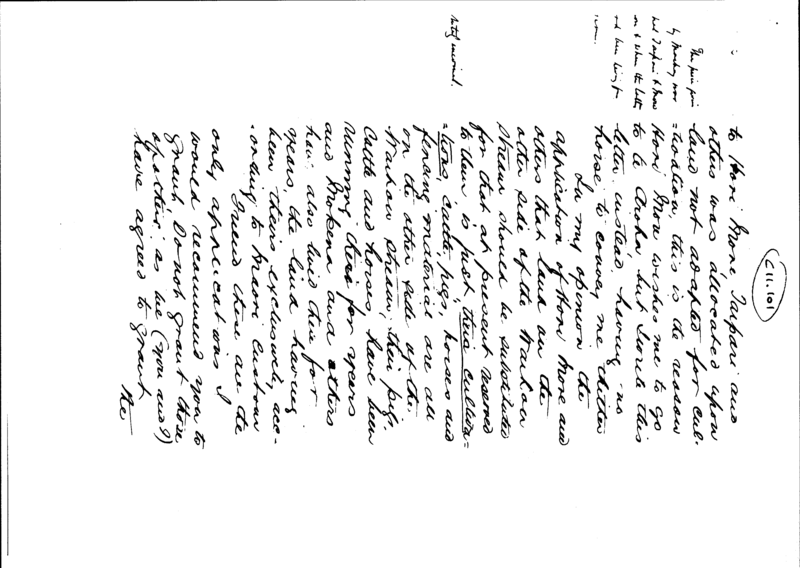 C111.101
to Hori More Taipari and
others was allocated upon
land not adapted for cul-
=tivation, this is the reason
Hori More wishes me to go
to Te Aroha, but I write this
letter instead, having no
horse to convey me thither
In my opinion the
application of Hori More and
others that land on the
other side of the Waihou
Stream should be substituted
for that at present reserved
to them is just their cultiva=
=tions, cattle, pigs, horses and
fencing material are all
on the other side of the
Waihou Stream, their pigs,
Cattle and horses, have been
running there for years
and Mokena and others
have also lived there for
years, the land having
been theirs exclusively acc-
-ording to Maori Custom
Friend these are the
only applications I
would recommend you to
grant, Do not grant those
of others as we (you and I)
have agreed to grant
the